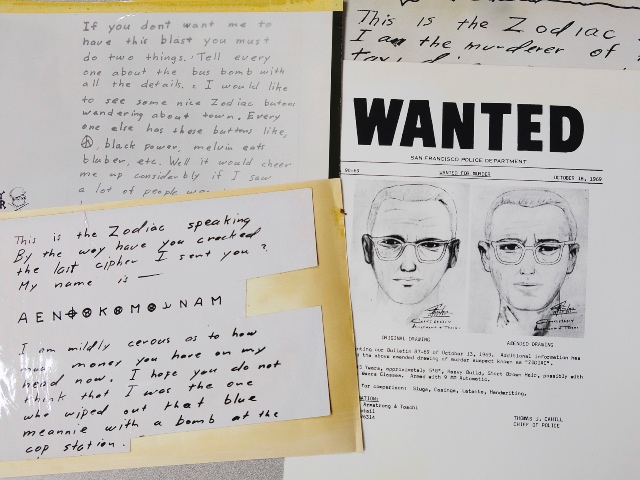 If you dont want me to
have this blast you must
do two things. Tell every
one about the bus bomb with
all the details. I would like
to see some nice Zodiac butons
wandering about town. Every
one else has these buttons like,
☮, black power, melvin eats
bluber, etc. Well it would cheer
me up considerbly if I saw
a lot of people
This is the Zodiac
I am the murderer of
WANTED
SAN FRANCISCO POLICE DEPARTMENT
90-69 WANTED FOR MURDER OCTOBER 18, 1969
ORIGINAL DRAWING AMENDED DRAWING
our Bulletin 87-69 of October 13, 1969. Additional information has
the above amended drawing of murder suspect known as "ZODIAC".
Years, approximately 5'8", Heavy Build, Short Brown Hair, possibly with
Wears Glasses. Armed with 9 MM Automatic.
for comparison: Slugs, Casings, Latents, Handwriting.
Armstrong & Toschi
THOMAS J. CAHILL
CHIEF OF POLICE
This is the Zodiac speaking
By the way have you cracked
the last cipher I sent you?
My name is —
A E N ⌖ ⊗ K ⊗ M ⊗ ⅃ N A M
I am mildly cerous as to how
much money you have on my
head now. I hope you do not
think that I was the one
who wiped out that blue
meannie with a bomb at the
cop station.